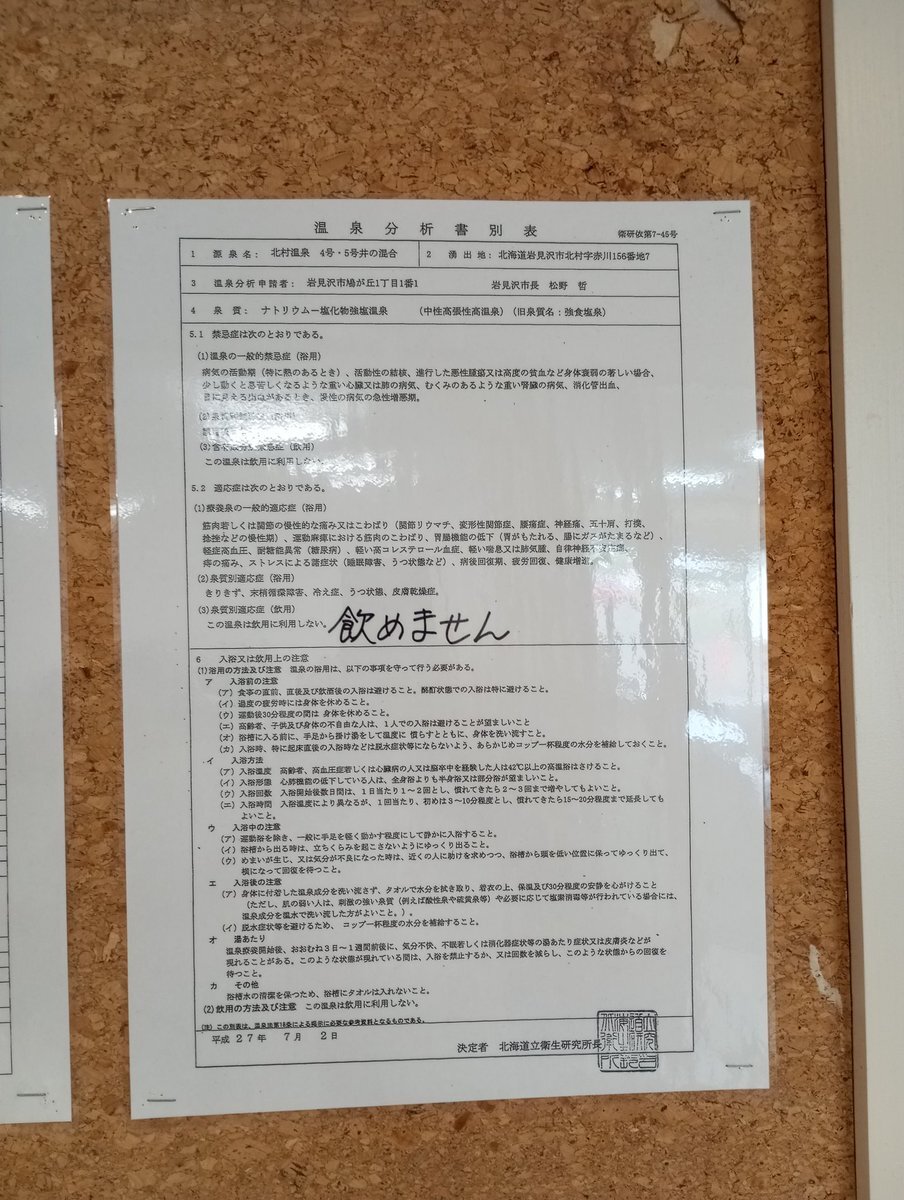 温泉分析書別表
衛研依第7-45号
1 源泉名: 北村温泉 4号・5号井の混合
2 湧出地: 北海道岩見沢市北村字赤川156番地7
3 温泉分析申請者: 岩見沢市鳩が丘1丁目1番1 岩見沢市長 松野 哲
4 泉質: ナトリウムー塩化物強塩温泉 (中性高張性高温泉)(旧泉質名:強食塩泉)
5.1 禁忌症は次のとおりである。
(1)温泉の一般的禁忌症(浴用)
病気の活動期(特に熱のあるとき)、活動性の結核、進行した悪性腫瘍又は高度の貧血など身体衰弱の著しい場合、
少し動くと息苦しくなるような重い心臓又は肺の病気、むくみのあるような重い腎臓の病気、消化管出血、
目に見える出血があるとき、慢性の病気の急性増悪期。
(2)
(3) 禁忌症(飲用)
この温泉は飲用に利用しない。
5.2 適応症は次のとおりである。
(1)療養泉の一般的適応症(浴用)
筋肉若しくは関節の慢性的な痛み又はこわばり(関節リウマチ、変形性関節症、腰痛症、神経痛、五十肩、打撲、
捻挫などの慢性期)、運動麻痺における筋肉のこわばり、胃腸機能の低下(胃がもたれる、腸にガスがたまるなど)、
軽症高血圧、耐糖能異常(糖尿病)、軽い高コレステロール血症、軽い喘息又は肺気腫、自律神経不安定症、
痔の痛み、ストレスによる諸症状(睡眠障害、うつ状態など)、病後回復期、疲労回復、健康増進。
(2)泉質別適応症(浴用)
きりきず、末梢循環障害、冷え症、うつ状態、皮膚乾燥症。
(3)泉質別適応症(飲用)
この温泉は飲用に利用しない。 飲めません
6 入浴又は飲用上の注意
(1)浴用の方法及び注意 温泉の浴用は、以下の事項を守って行う必要がある。
ア 入浴前の注意
(ア)食事の直前、直後及び飲酒後の入浴は避けること。酩酊状態での入浴は特に避けること。
(イ)過度の疲労時には身体を休めること。
(ウ)運動後30分程度の間は 身体を休めること。
(エ)高齢者、子供及び身体の不自由な人は、1人での入浴は避けることが望ましいこと
(オ)浴槽に入る前に、手足から掛け湯をして温度に 慣らすとともに、身体を洗い流すこと。
(カ)入浴時、特に起床直後の入浴時などは脱水症状等にならないよう、あらかじめコップ一杯程度の水分を補給しておくこと。
イ 入浴方法
(ア)入浴温度 高齢者、高血圧症若しくは心臓病の人又は脳卒中を経験した人は42℃以上の高温浴はさけること。
(イ)入浴形態 心肺機能の低下している人は、全身浴よりも半身浴又は部分浴が望ましいこと。
(ウ)入浴回数 入浴開始後数日間は、1日当たり1〜2回とし、慣れてきたら2〜3回まで増やしてもよいこと。
(エ)入浴時間 入浴温度により異なるが、1回当たり、初めは3〜10分程度とし、慣れてきたら15〜20分程度まで延長しても
よいこと。
ウ 入浴中の注意
(ア)運動浴を除き、一般に手足を軽く動かす程度にして静かに入浴すること。
(イ)浴槽から出る時は、立ちくらみを起こさないようにゆっくり出ること。
(ウ)めまいが生じ、又は気分が不良になった時は、近くの人に助けを求めつつ、浴槽から頭を低い位置に保ってゆっくり出て、
横になって回復を待つこと。
エ 入浴後の注意
(ア)身体に付着した温泉成分を洗い流さず、タオルで水分を拭き取り、着衣の上、保温及び30分程度の安静を心がけること
(ただし、肌の弱い人は、刺激の強い泉質(例えば酸性泉や硫黄泉等)や必要に応じて塩素消毒等が行われている場合には、
温泉成分を温水で洗い流した方がよいこと。)。
(イ)脱水症状等を避けるため、コップ一杯程度の水分を補給すること。
オ 湯あたり
温泉療養開始後、おおむね3日〜1週間前後に、気分不快、不眠若しくは消化器症状等の湯あたり症状又は皮膚炎などが
現れることがある。このような状態が現れている間は、入浴を禁止するか、又は回数を減らし、このような状態からの回復を
待つこと。
カ その他
浴槽水の清潔を保つため、浴槽にタオルは入れないこと。
(2)飲用の方法及び注意 この温泉は飲用に利用しない。
(注)この別表は、温泉法第18条による掲示に必要な参考資料となるものである。
平成 27年 7月 2日
決定者 北海道立衛生研究所長